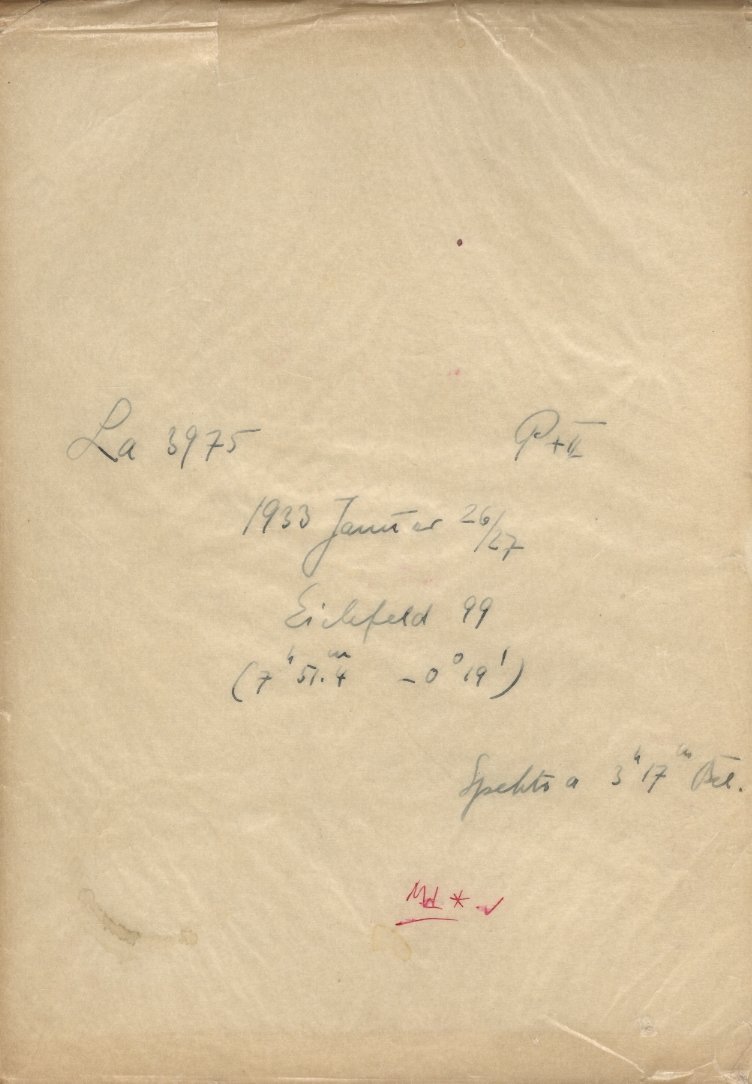 La 3975 P + II
1933 Januar 26/27
Eichfeld 99
(7ʰ 51.ᵐ4 -0° 19')
Spektra 3ʰ 17ᵐ Bel.